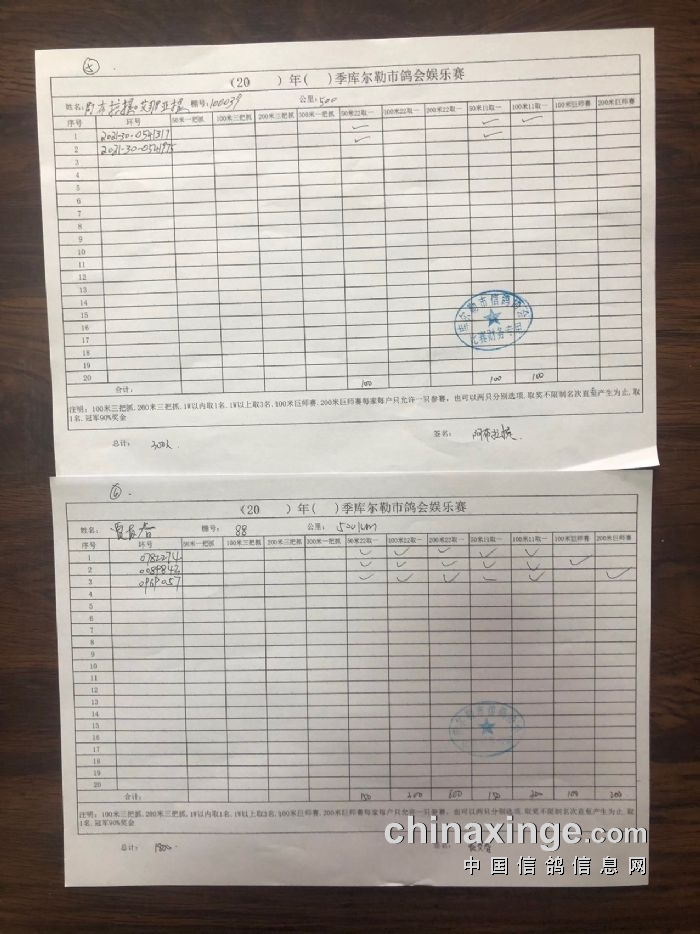 ⑤
（20 ）年（ ）季库尔勒市鸽会娱乐赛
姓名: 棚号: 100039 公里: 500
序号 环号 50米一把抓 100米三把抓 200米三把抓 300米一把抓 50米22取一 100米22取一 200米22取一 50米11取一 100米11取一 100米巨师赛 200米巨师赛
1 2021-30-0541317 ✓ ✓ ✓
2 2021-30-0541975 ✓ ✓
3
4
5
6
7
8
9
10
11
12
13
14
15
16
17
18
19
20
合计: 100 100 100
库尔勒市信鸽协会
比赛财务专用
注明: 100米三把抓.200米三把抓.1W以内取1名.1W以上取3名.100米巨师赛.200米巨师赛每家每户只允许一只参赛，也可以两只分别选项.取奖不限制名次直至产生为止.取
1名.冠军90%奖金
总计: 300 签名: 阿布拉提
⑥
（20 ）年（ ）季库尔勒市鸽会娱乐赛
姓名: 棚号: 88 公里: 500km
序号 环号 50米一把抓 100米三把抓 200米三把抓 300米一把抓 50米22取一 100米22取一 200米22取一 50米11取一 100米11取一 100米巨师赛 200米巨师赛
1 0782274 ✓ ✓ ✓ ✓ ✓
2 0089842 ✓ ✓ ✓ ✓ ✓ ✓
3 0969057 ✓ ✓ ✓ ✓ ✓ ✓
4
5
6
7
8
9
10
11
12
13
14
15
16
17
18
19
20
合计: 150 300 600 150 300 100 200
注明: 100米三把抓.200米三把抓.1W以内取1名.1W以上取3名.100米巨师赛.200米巨师赛每家每户只允许一只参赛，也可以两只分别选项.取奖不限制名次直至产生为止.取
1名.冠军90%奖金
总计: 1800
chinaxinge.com
中国信鸽信息网